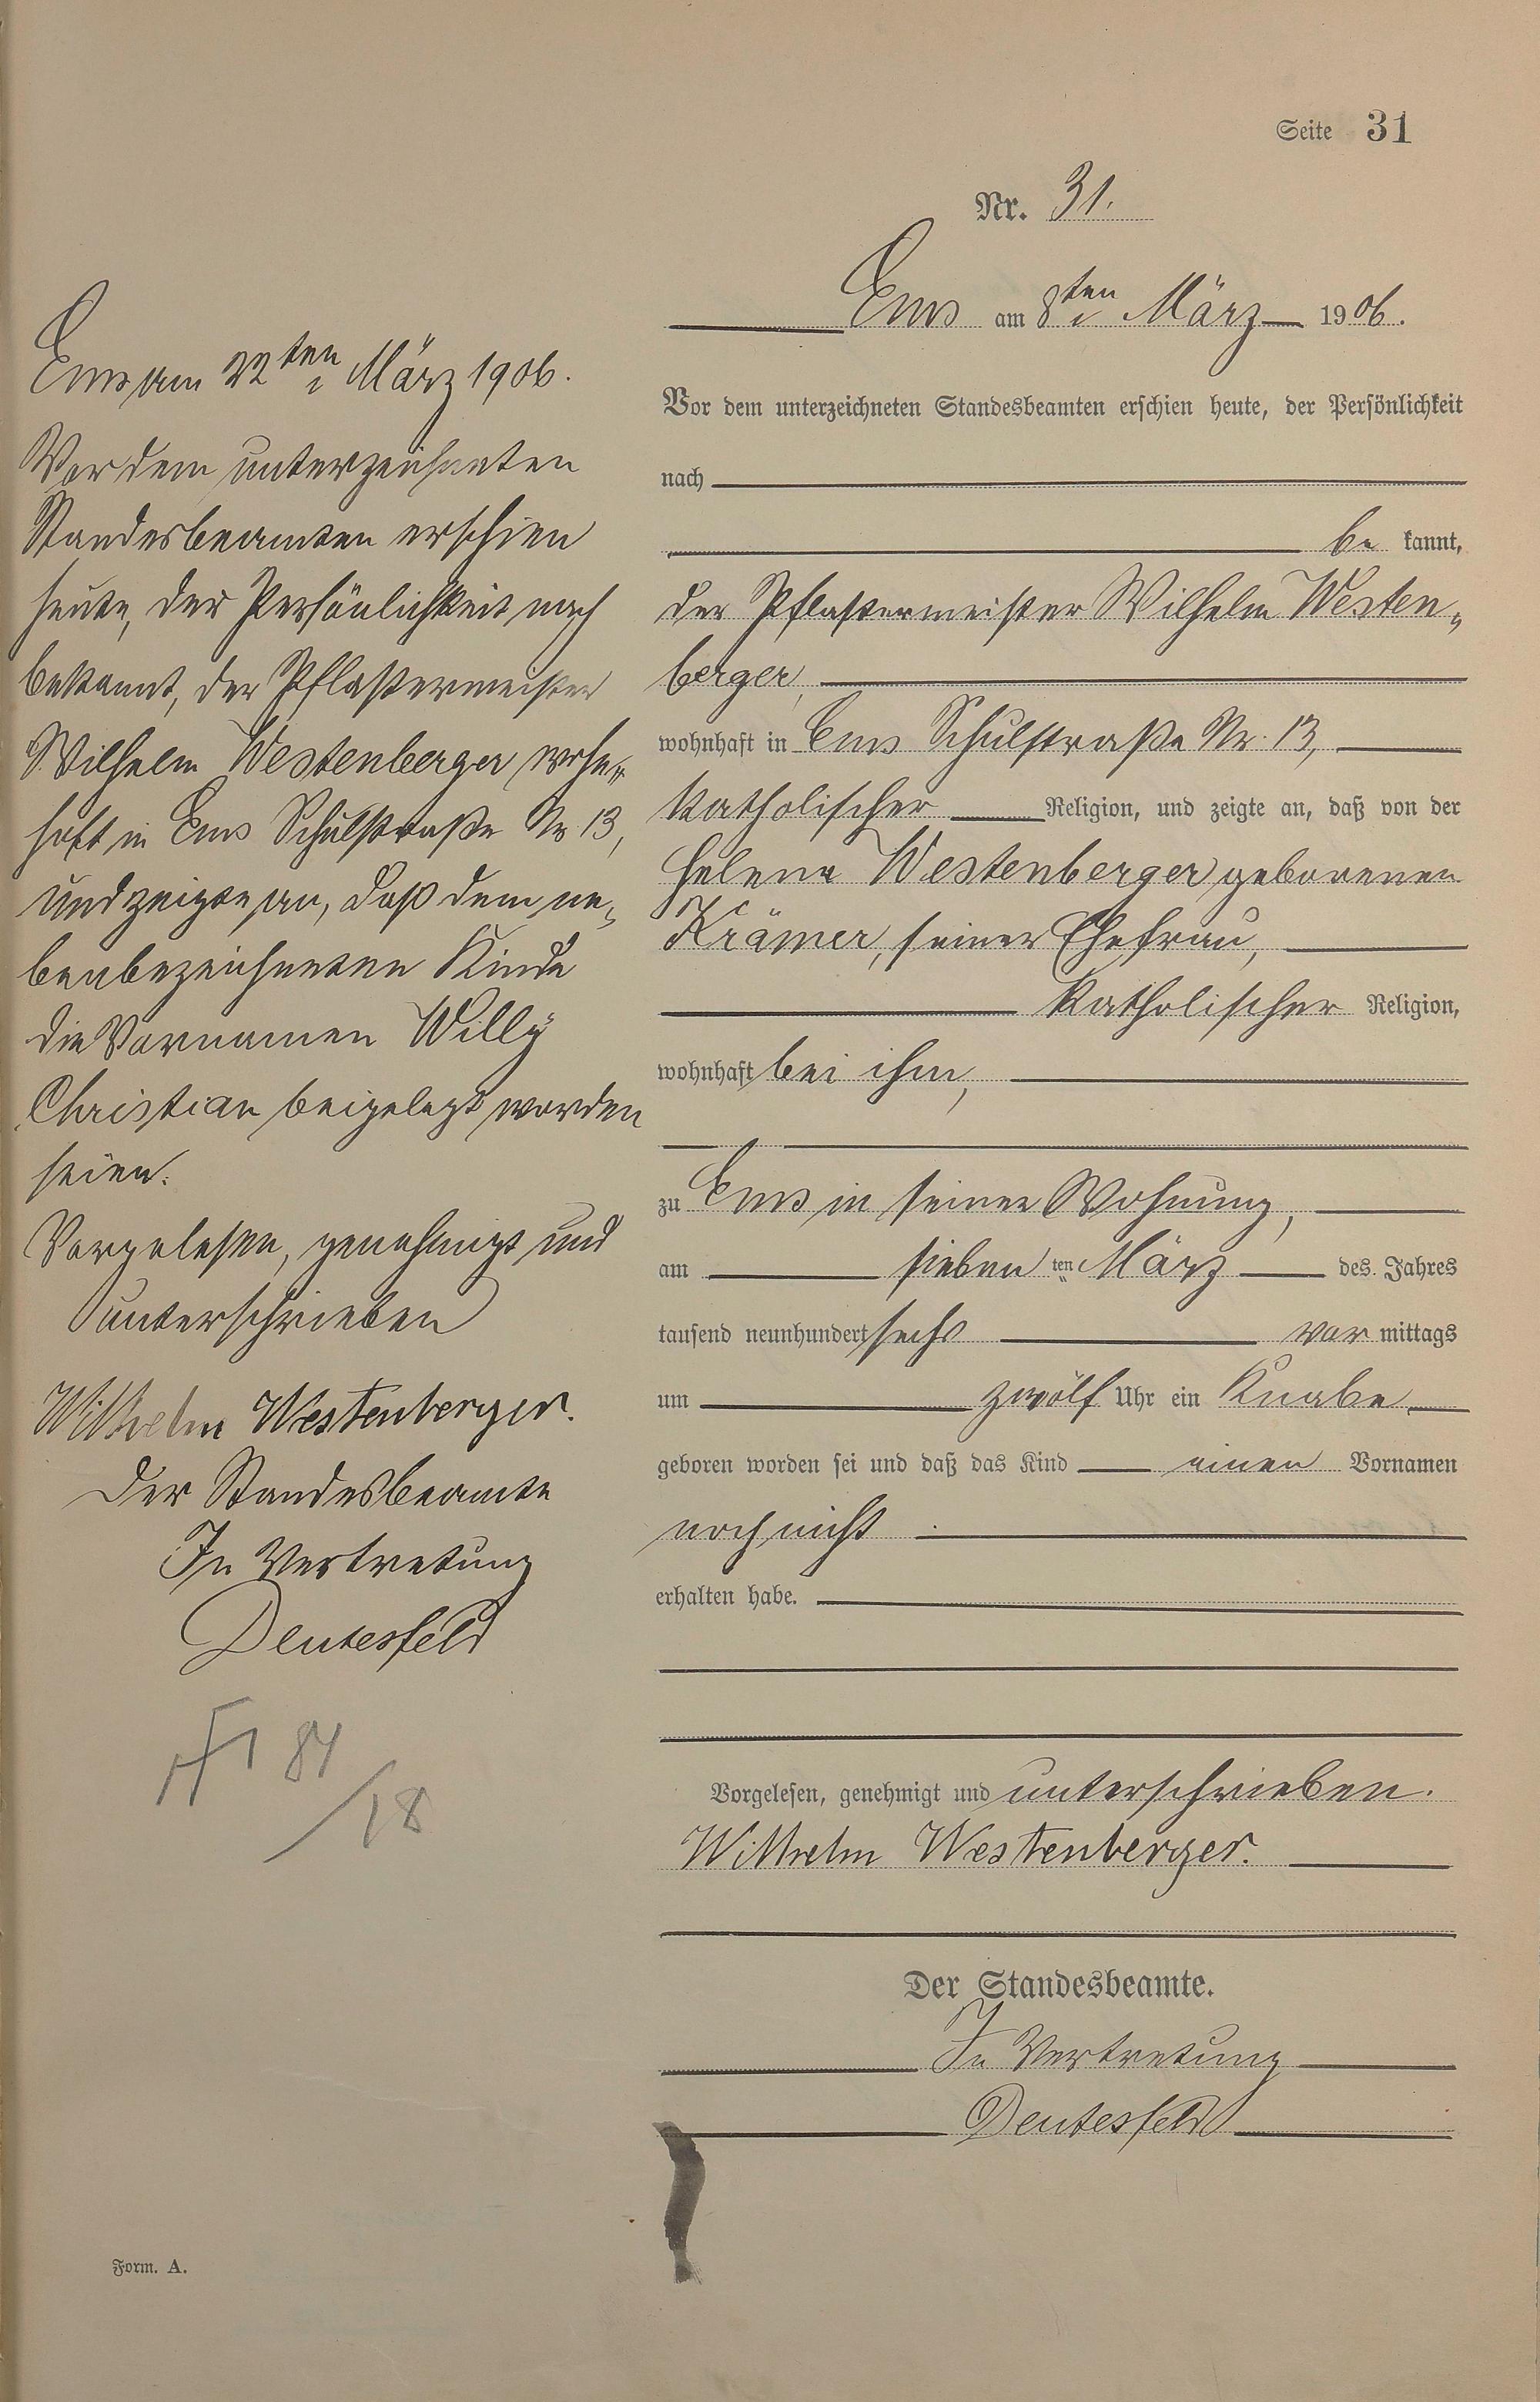 Seite 31
Nr. 31.
Ems am 8ten März 1906.
Vor dem unterzeichneten Standesbeamten erschien heute, der Persönlichkeit
nach
be kannt,
der Pflastermeister Wilhelm Westen-
berger,
wohnhaft in Ems Schulstraße Nr. 13,
katholischer Religion, und zeigte an, daß von der
Helena Westenberger geborenen
Krämer, seiner Ehefrau,
katholischer Religion,
wohnhaft bei ihm,
zu Ems in seiner Wohnung,
am sieben ten März des Jahres
tausend neunhundert sechs vor mittags
um zwölf Uhr ein Knabe
geboren worden sei und daß das Kind einen Vornamen
noch nicht
erhalten habe.
Vorgelesen, genehmigt und unterschrieben.
Wilhelm Westenberger.
Der Standesbeamte.
In Vertretung
Deutesfeld
Ems am 22ten März 1906.
Vor dem unterzeichneten
Standesbeamten erschien
heute, der Persönlichkeit nach
bekannt, der Pflastermeister
Wilhelm Westenberger wohn-
haft in Ems Schulstraße Nr. 13,
und zeigte an, daß dem ne-
benbezeichneten Kinde
die Vornamen Willÿ
Christian beigelegt worden
seien.
Vorgelesen, genehmigt und
unterschrieben
Wilhelm Westenberger.
Der Standesbeamte
In Vertretung
Deutesfeld
84
/18
Form. A.